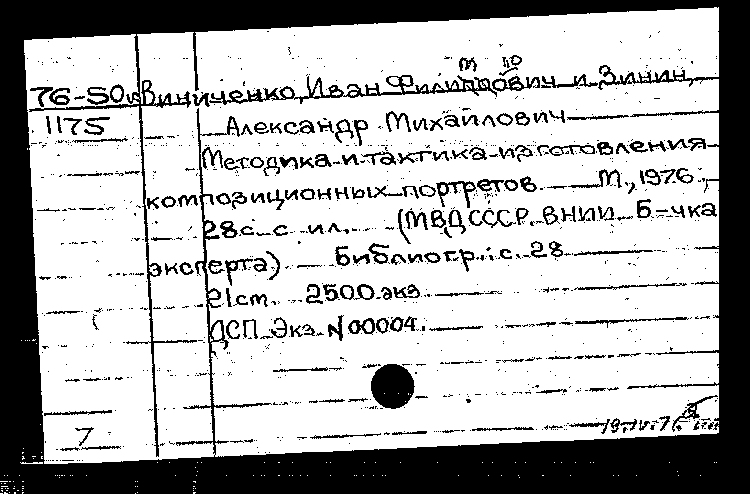 76-50в Виниченко, Иван Филиппович и Зинин,
1175 Александр Михайлович
Методика и тактика изготовления
композиционных портретов. М., 1976.,
28с. с ил. (МВД СССР. ВНИИ. Б-чка
эксперта) Библиогр.: с. 28
21см. 2500 экз.
ДСП Экз. N 00004.
7